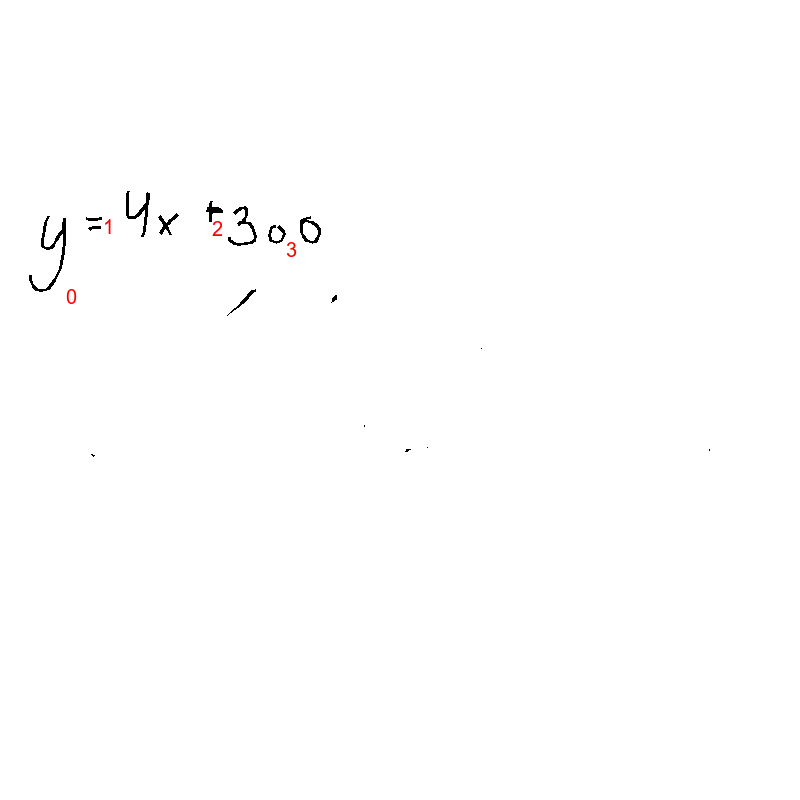 y = 4x + 300
0 1 2 3